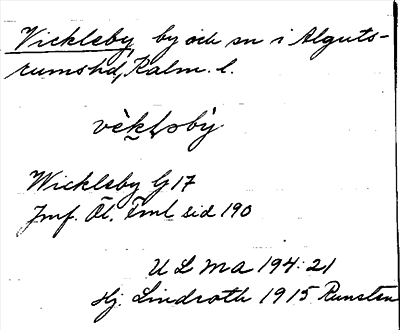 Vickleby, by och sn i Alguts-
rumshd, Kalm. l.
vèklsbỳ
Wickleby G 17
Jmf. Öl. Fml sid 190
ULMA 194:21
Hj. Lindroth 1915 Runsten